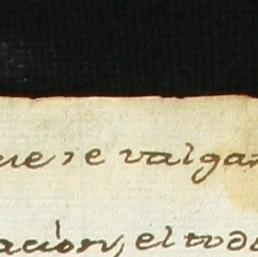 ue se valga
ación, el todo